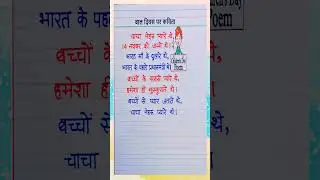 बाल दिवस पर कविता
चाचा नेहरू प्यारे थे,
14 नवम्बर को जन्मे थे।
भारत माँ के दुलारे थे,
भारत के पहले प्रधानमंत्री थे।
बच्चों के सबसे प्यारे थे,
हमेशा ही मुस्कुराते थे।
बच्चों से प्यार जताते थे,
चाचा नेहरू प्यारे थे।
Children's Day
Poem
भारत के पह
बच्चों के
हमेशा ही
बच्चों से
चाचा
री थे।
थे,
थे।
थे,
थे।